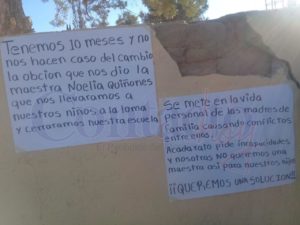 Tenemos 10 meses y no
nos hacen caso del cambio
la obcion que nos dio la
maestra Noelia Quiñones
que nos llevaramos a
nuestros niños a la loma
y cerraramos nuestra escuela
Se mete en la vida
personal de las madres de
familia causando conflictos
entre ellas.
Acada rato pide incapacidades
y nosotros NO queremos una
maestra asi para nuestros hijos
¡¡QUEREMOS UNA SOLUCION!!